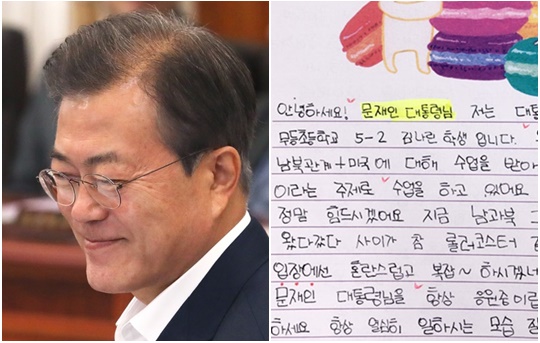 안녕하세요! 문재인 대통령님 저는 대
무등초등학교 5-2 김나린 학생 입니다.
남북관계+미국에 대해 수업을 받아
이라는 주제로 수업을 하고 있어요
정말 힘드시겠어요 지금 남과북
왔다갔다 사이가 참 롤러코스터
입장에선 혼란스럽고 복잡~ 하시겠
문재인 대통령님을 항상 응원중이랍
하세요 항상 열심히 일하시는 모습